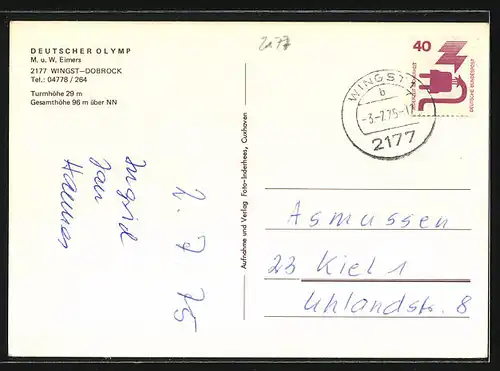 2177
DEUTSCHER OLYMP
M. u. W. Eimers
2177 WINGST—DOBROCK
Tel.: 04778 / 264
Turmhöhe 29 m
Gesamthöhe 96 m über NN
Ingrid
Jan
Hannes
2. 7. 75
Aufnahme und Verlag Foto-Inderhees, Cuxhoven
WINGST
b
-3.-7.75-17
2177
40
DEUTSCHE BUNDESPOST
Asmussen
23 Kiel 1
Uhlandstr. 8